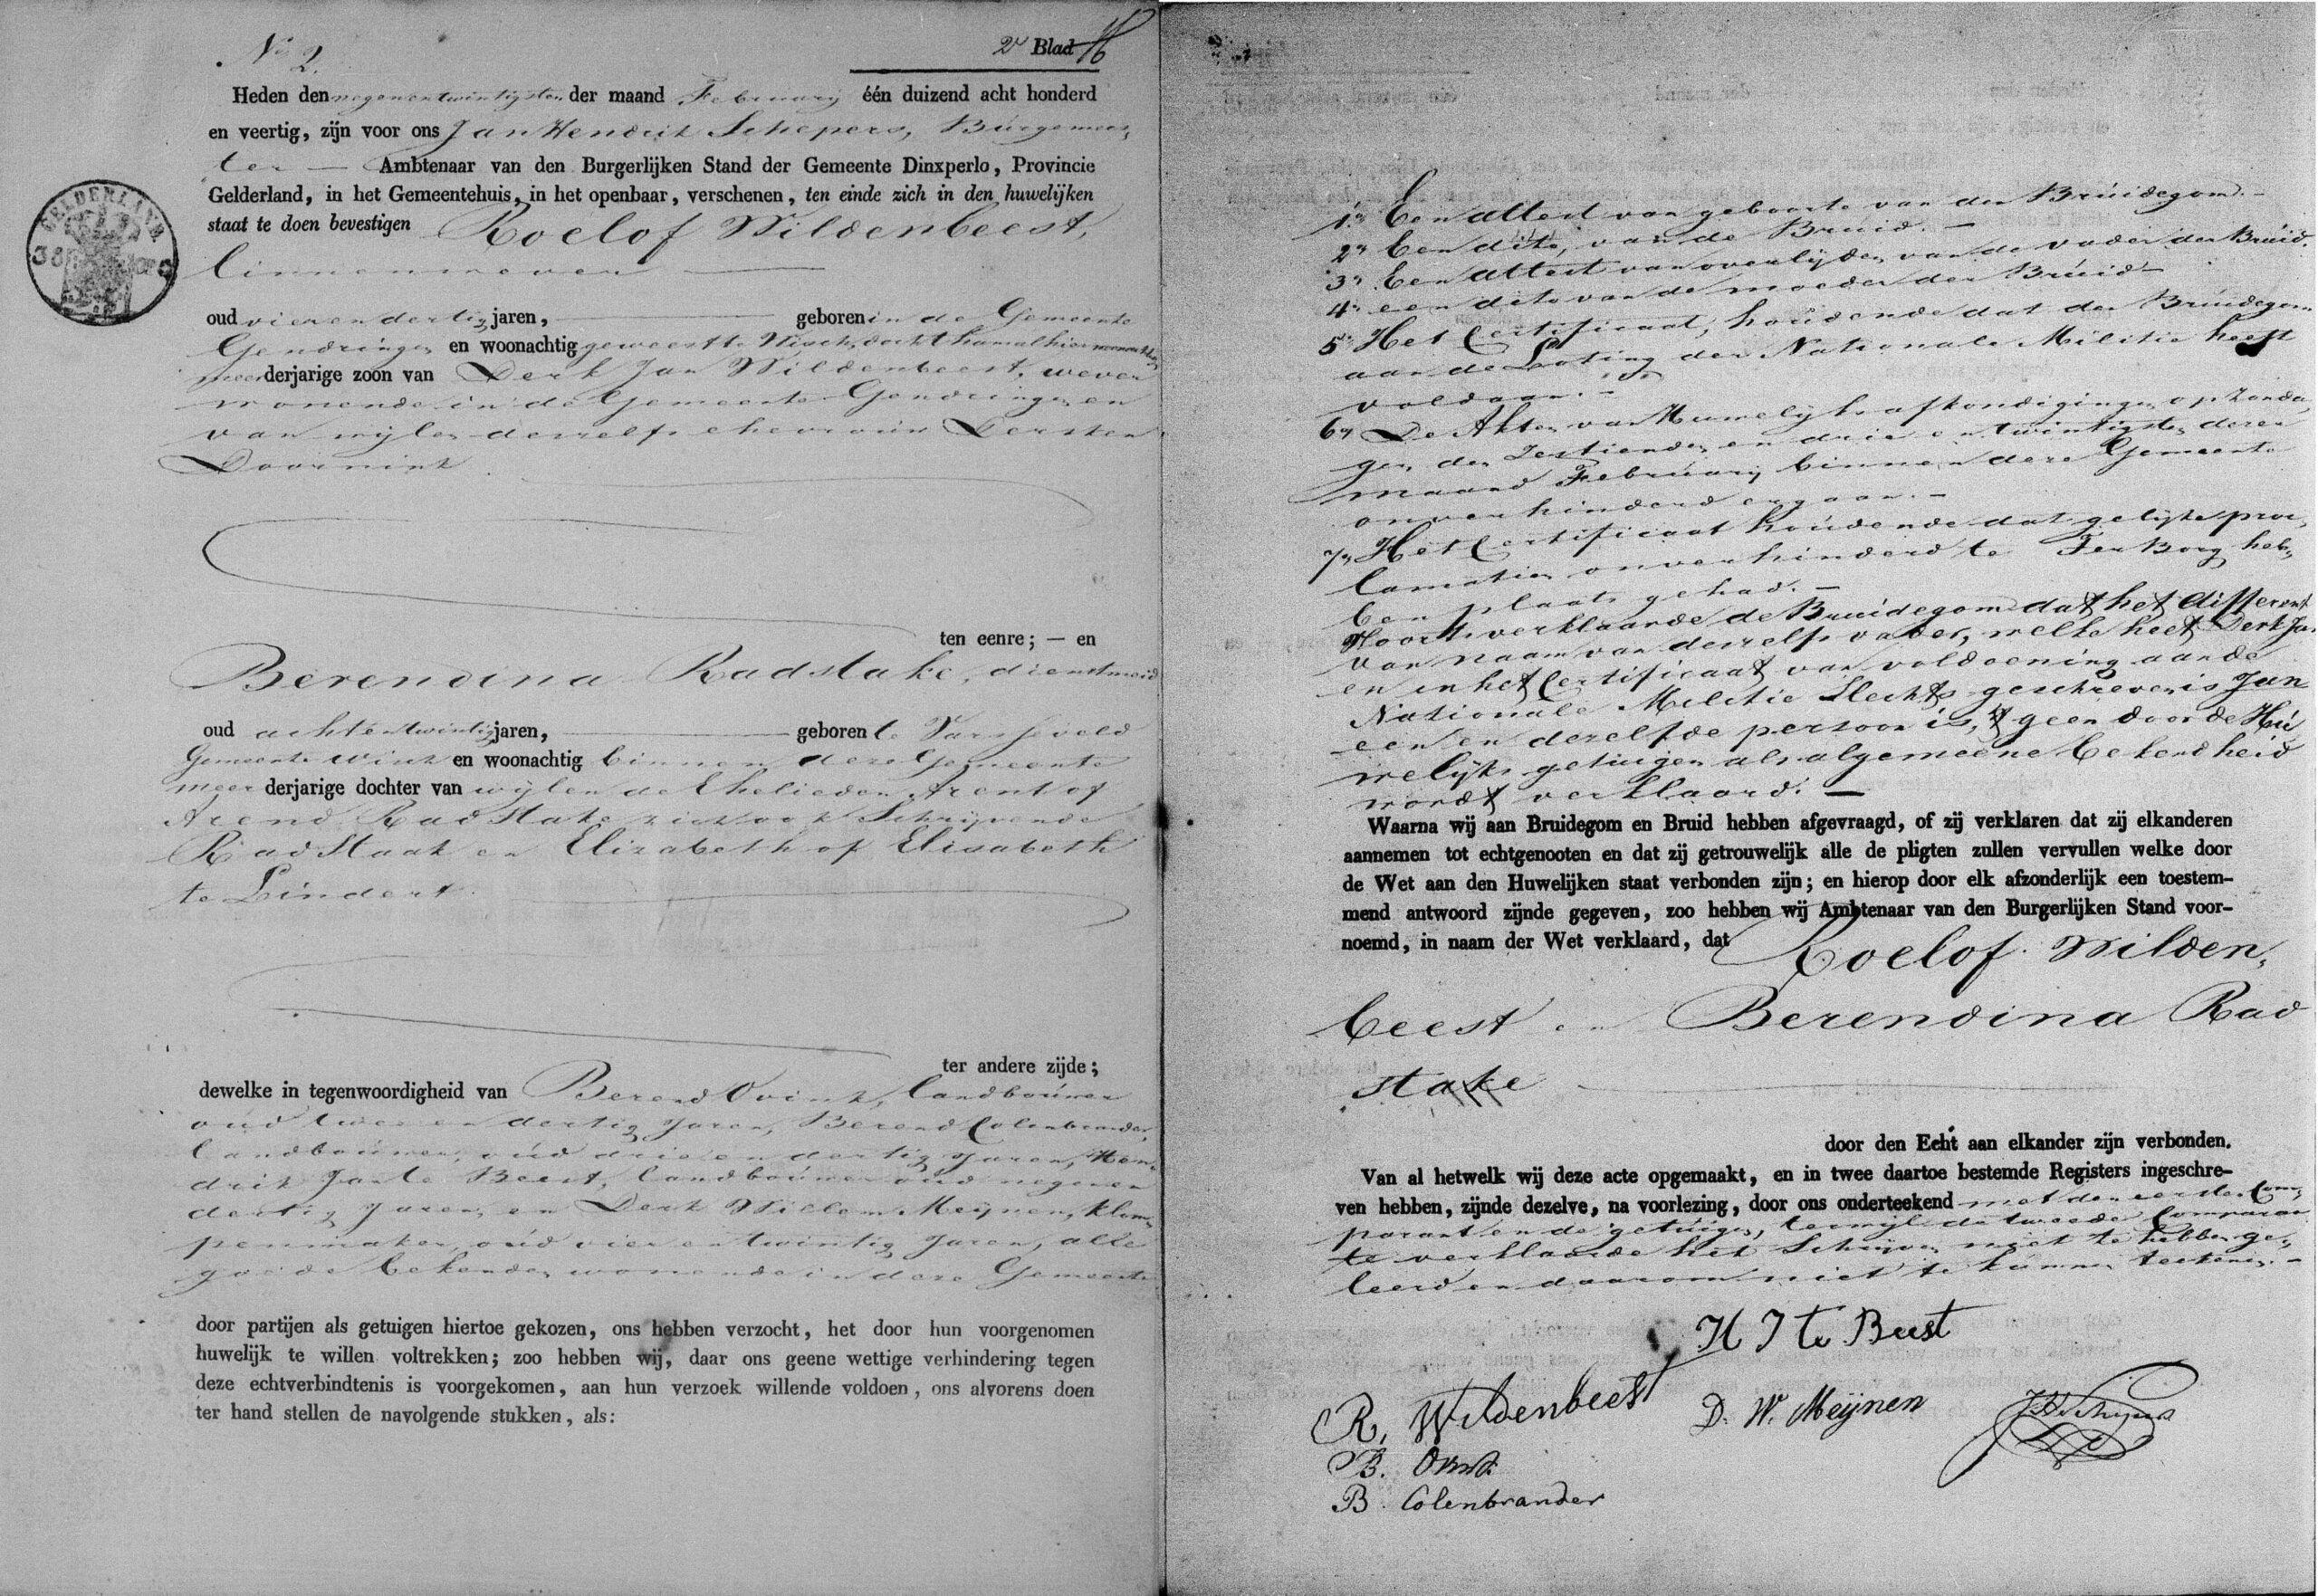 No 2.
2e Blad
Heden den negenentwintigsten der maand February één duizend acht honderd
en veertig, zijn voor ons Jan Hendrik Schepers, Burgemees,
ter — Ambtenaar van den Burgerlijken Stand der Gemeente Dinxperlo, Provincie
Gelderland, in het Gemeentehuis, in het openbaar, verschenen, ten einde zich in den huwelijken
staat te doen bevestigen Roelof Wildenbeest,
linnenwever
GELDERLAND
oud vierendertig jaren, geboren in de Gemeente
Gendringen en woonachtig geweest te Wisch, doch thans alhier
meerderjarige zoon van Derk Jan Wildenbeest, wever
wonende in de Gemeente Gendringen en
van wijlen deszelfs ehevrouw Dersken
Doornink
ten eenre; — en
Berendina Radstake, dienstmeid
oud achtentwintig jaren, geboren te Varsseveld
Gemeente Wisch en woonachtig binnen deze Gemeente
meerderjarige dochter van wijlen de Ehelieden Arent of
Arend Radstake zich ook Schrijvende
Radstaak en Elizabeth of Elisabeth
te Lindert.
ter andere zijde;
dewelke in tegenwoordigheid van Berend Ovink, landbouwer
oud twee en dertig Jaren, Berend Colenbrander,
landbouwer, oud drie en dertig Jaren, Hen,
drik Jan te Beest, landbouwer oud negenen
dertig Jaren, en Derk Willem Meijnen, klom,
penmaker, oud vier en twintig Jaren, alle
goede bekenden wonende in deze Gemeente
door partijen als getuigen hiertoe gekozen, ons hebben verzocht, het door hun voorgenomen
huwelijk te willen voltrekken; zoo hebben wij, daar ons geene wettige verhindering tegen
deze echtverbindtenis is voorgekomen, aan hun verzoek willende voldoen, ons alvorens doen
ter hand stellen de navolgende stukken, als:
1e Een attest van geboorte van den Bruidegom. —
2e Een dito, van de Bruid. —
3e Een attest van overlijden van de vader der Bruid.
4e een dito van de moeder der Bruid —
5e Het Certificaat, houdende dat de Bruidegom
aan de Loting der Nationale Militie heeft
voldaan. —
6e De Akten van Huwelijks afkondigingen op Zonda,
gen den Zestienden en drie en twintigsten dezer
maand February binnen deze Gemeente
onverhinderd ergaan. —
7e Het Certificaat houdende dat gelijke proc,
lamatien onverhinderd te Ter Borg heb,
ben plaats gehad. —
Voorts verklaarde de Bruidegom dat het different
van naam van deszelfs vader, welke heet Derk Jan
en in het Certificaat van voldoening aan de
Nationale Militie Slechts geschreven is Jan
een en dezelfde persoon is, 't geen door de Hu
welijks getuigen als algemeene bekendheid
wordt verklaard. —
Waarna wij aan Bruidegom en Bruid hebben afgevraagd, of zij verklaren dat zij elkanderen
aannemen tot echtgenooten en dat zij getrouwelijk alle de pligten zullen vervullen welke door
de Wet aan den Huwelijken staat verbonden zijn; en hierop door elk afzonderlijk een toestem-
mend antwoord zijnde gegeven, zoo hebben wij Ambtenaar van den Burgerlijken Stand voor-
noemd, in naam der Wet verklaard, dat Roelof Wilden,
beest en Berendina Rad
stake
door den Echt aan elkander zijn verbonden.
Van al hetwelk wij deze acte opgemaakt, en in twee daartoe bestemde Registers ingeschre-
ven hebben, zijnde dezelve, na voorlezing, door ons onderteekend met den eersten Com,
parant en de getuigen, terwijl de tweede Comparan
te verklaarde het Schrijven niet te hebben ge,
leerd en daarom niet te kunnen teekenen. —
H J te Beest
R. Wildenbeest
D. W. Meijnen
JH Schepers
B. Ovink
B. Colenbrander